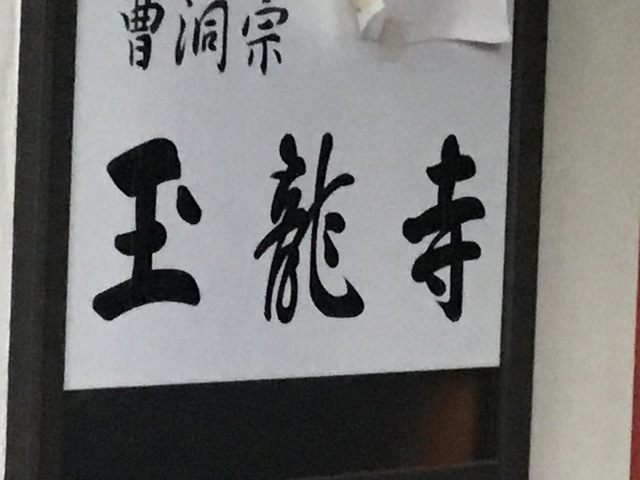 曹洞宗
玉龍寺